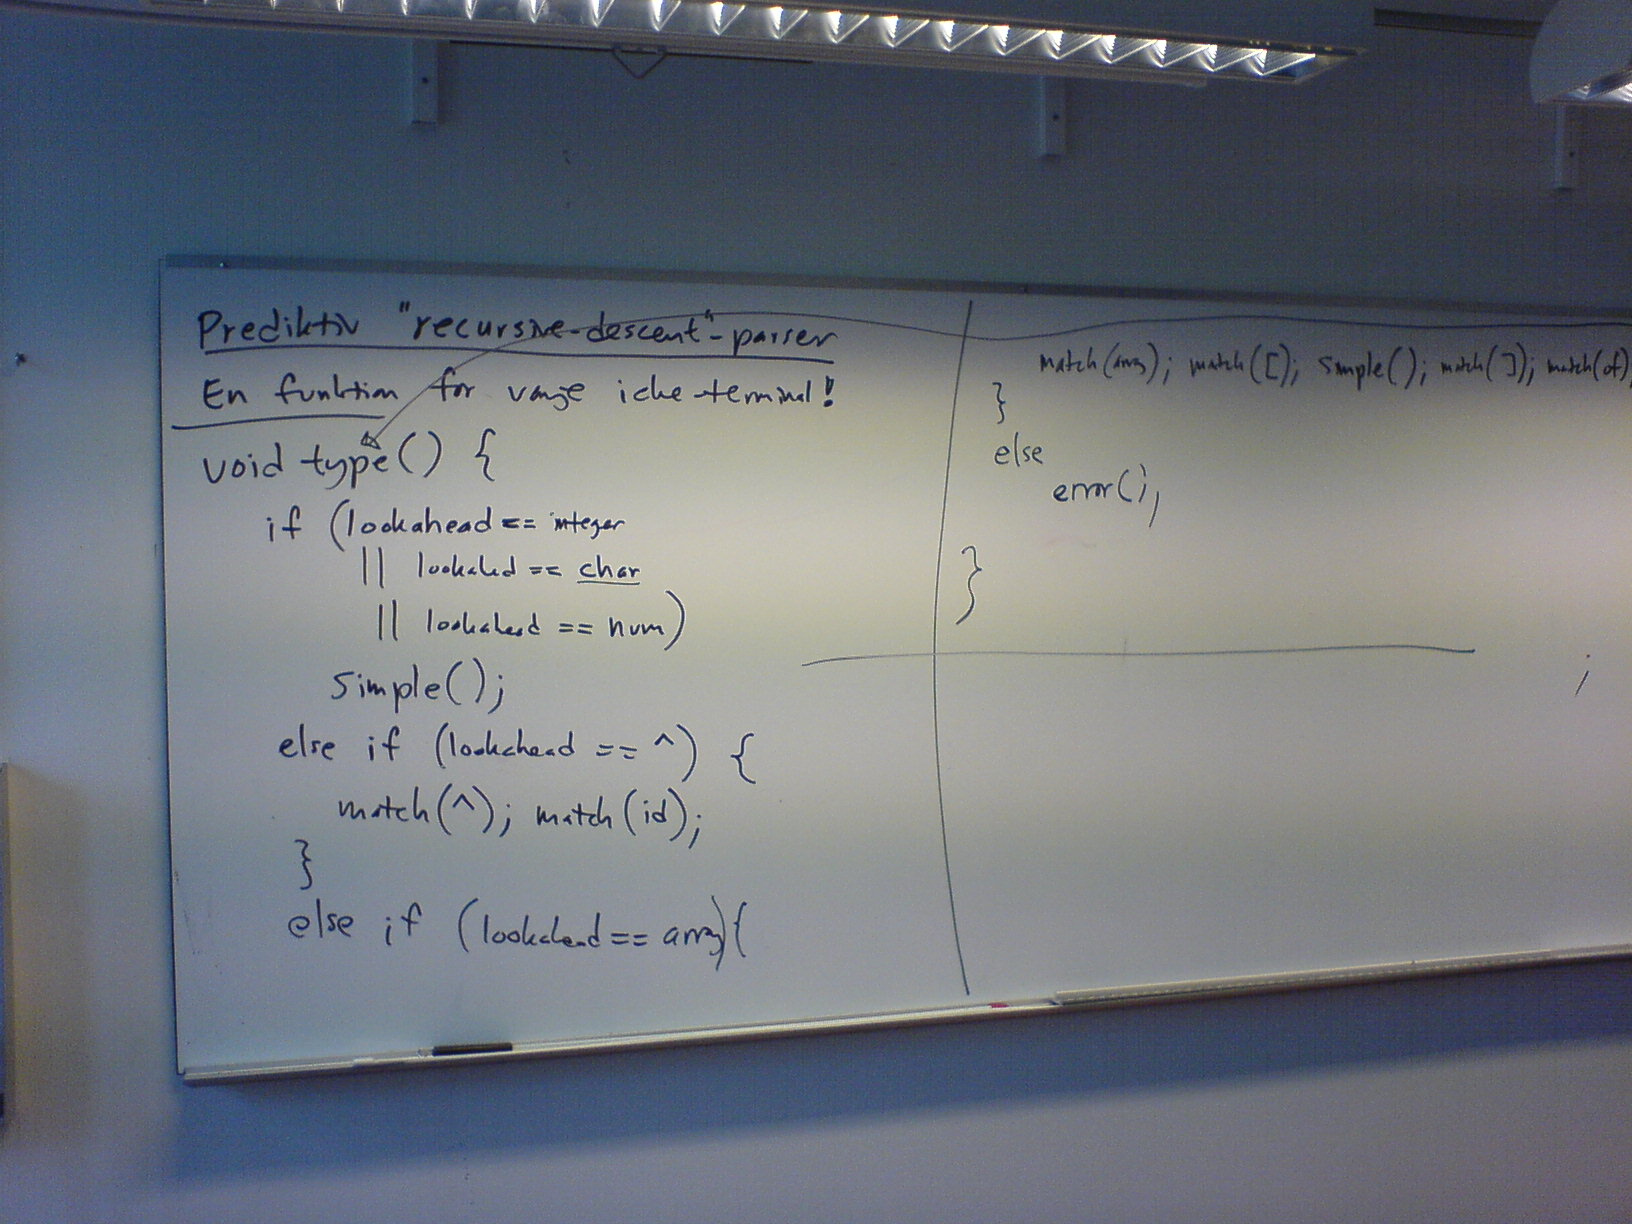 Prediktiv "recursive-descent"-parser
En funktion for varje icke-terminal!
void type() {
if (lookahead == integer
|| lookahead == char
|| lookahead == num)
simple();
else if (lookahead == ^) {
match(^); match(id);
}
else if (lookahead == array) {
match(array); match([); simple(); match(]); match(of);
}
else
error();
}
;